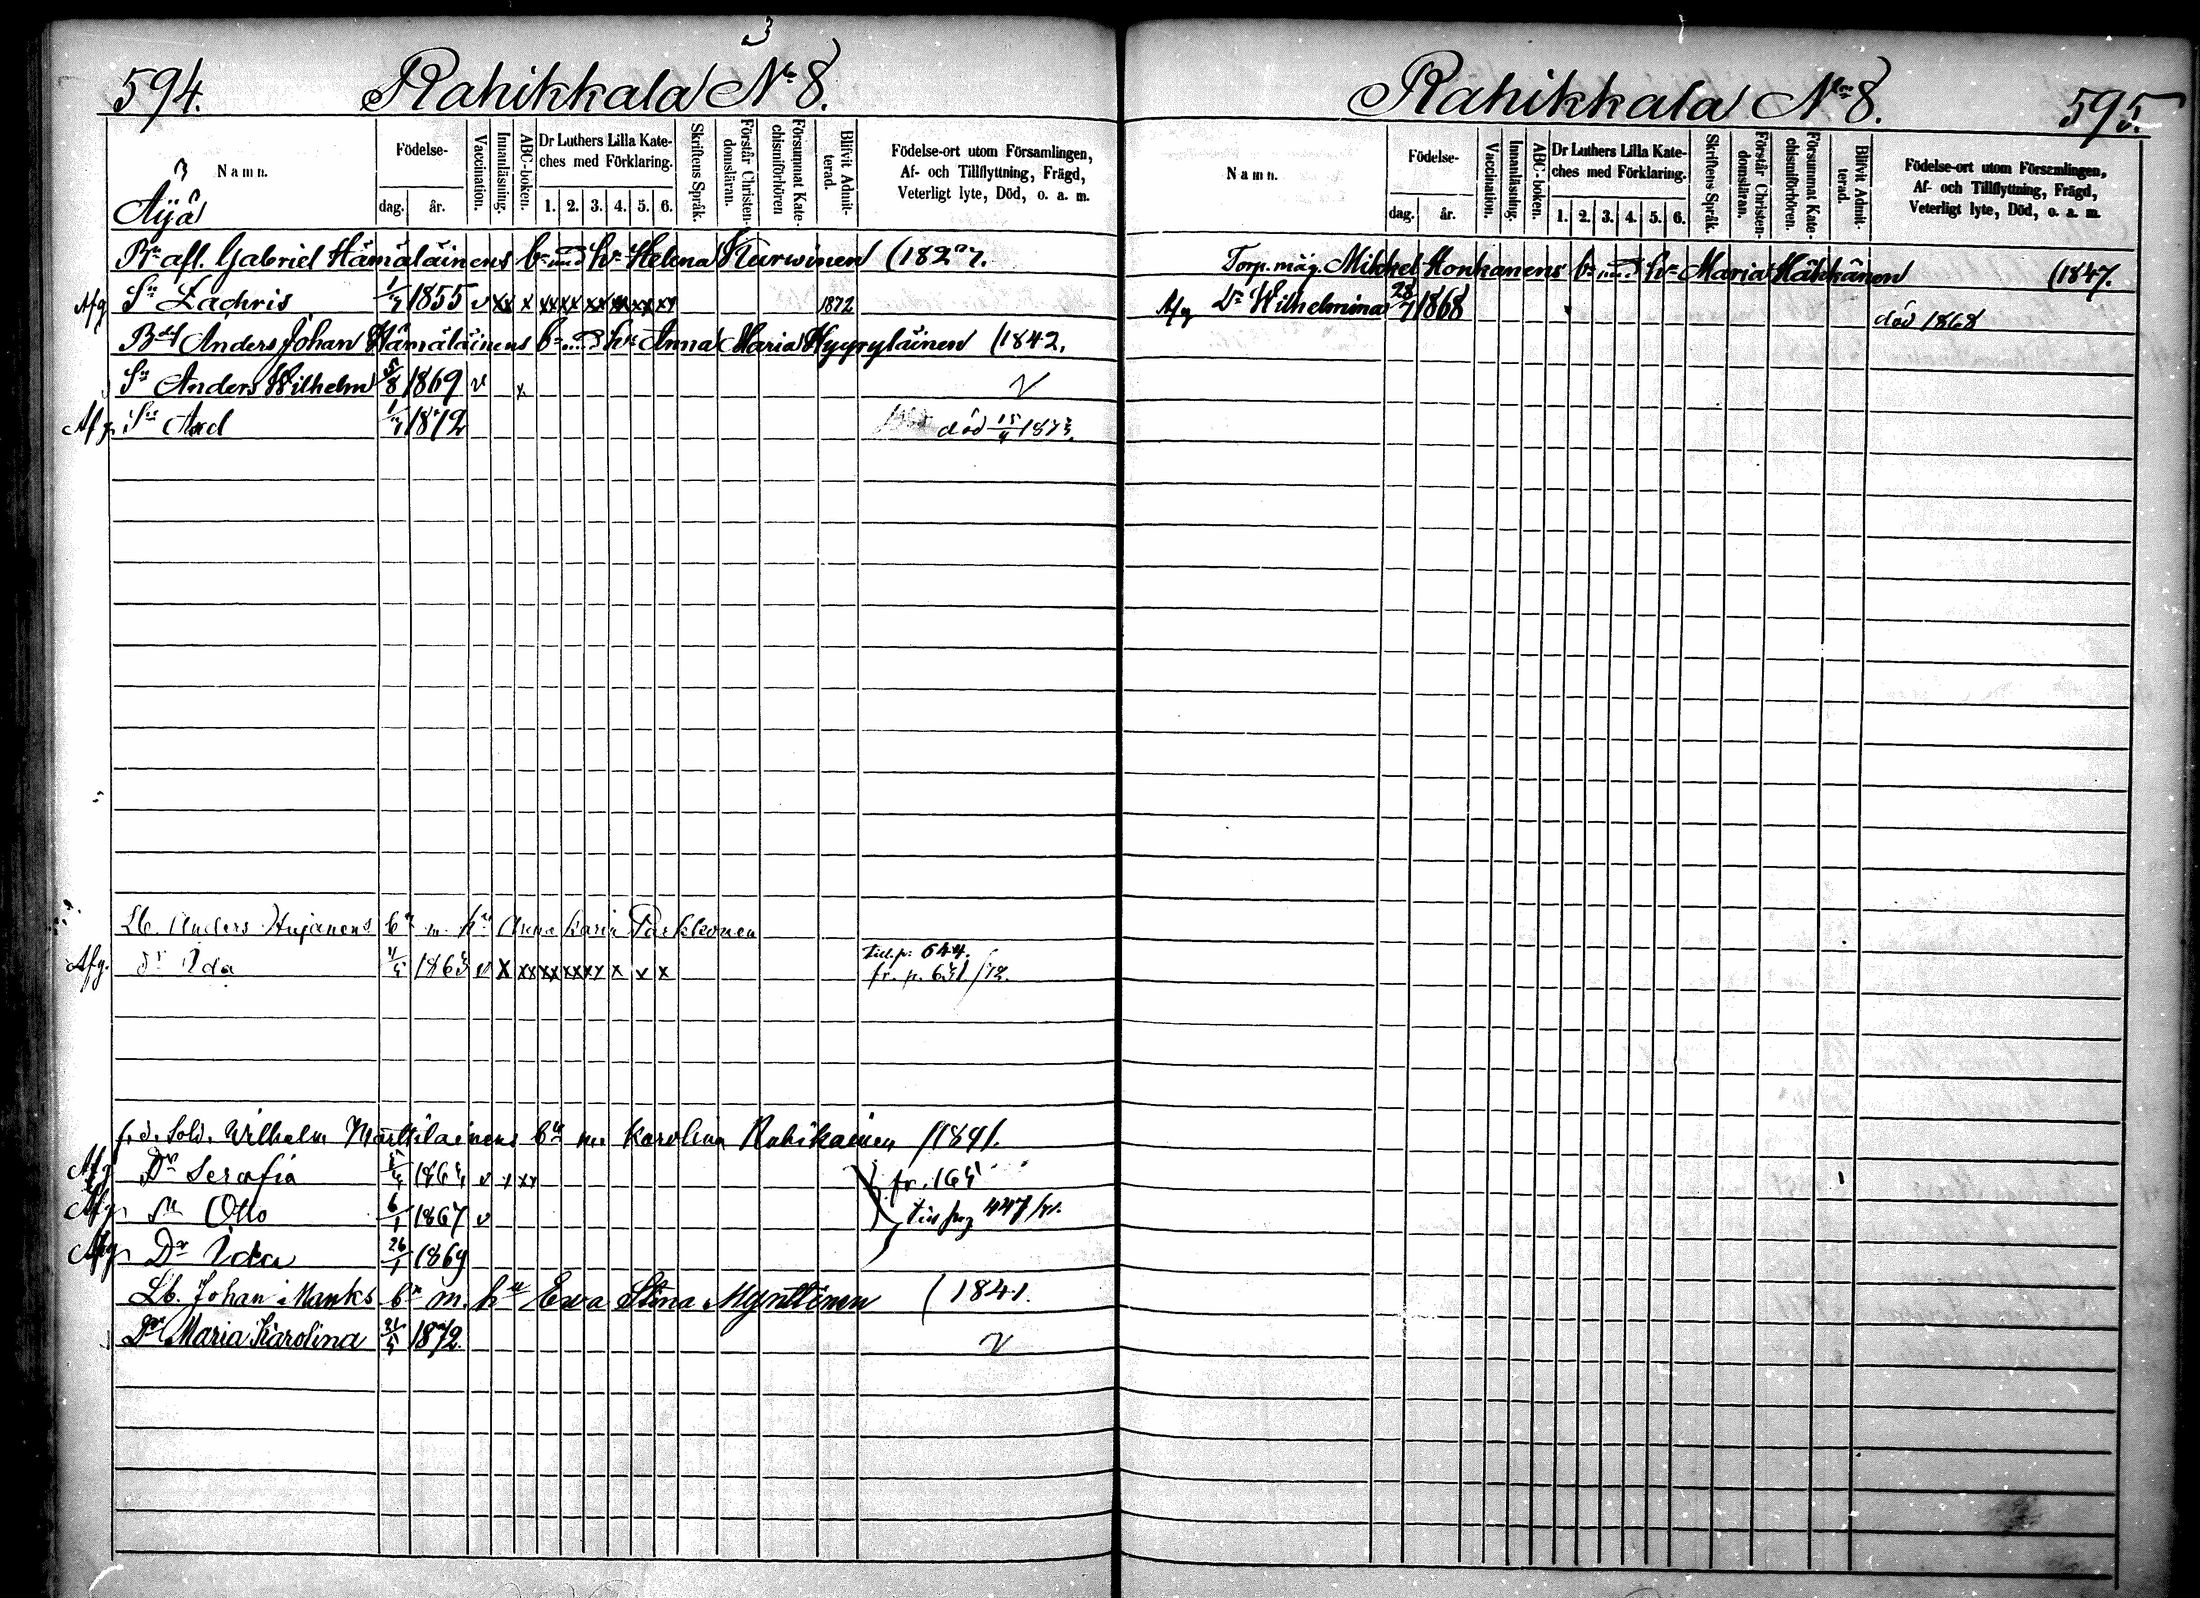 3
594. Rahikkala No 8.
Namn.
Födelse-
dag. år.
Vaccination.
Innanläsning.
ABC-boken.
Dr Luthers Lilla Kate-
ches med Förklaring.
1. 2. 3. 4. 5. 6.
Skriftens Språk.
Förstår Christen-
domsläran.
Försummat Kate-
chismiförhören
Blifvit Admit-
terad.
Födelse-ort utom Församlingen,
Af- och Tillflyttning, Frägd,
Veterligt lyte, Död, o. a. m.
Äijä
afl. Gabriel Hämäläinens bn med hu Helena Kurwinen
Afg Sn Zachris 1/7 1855 v xx x xx xx xx xx xx xx 1872
Anders Johan Hämäläinens bn hu Anna Maria Hyyryläinen (1842.
Sn Anders Wilhelm 5/8 1869 v x v
Afg. Sn Axel 1872 död 15/4 1873.
Lb. Anders Hujanens bn m. hu Anna Karin Parkkonen
Afg. Dr Ida 1863 v x xx xx xx xx x v x till p: 644.
fr. p. 631/72.
f.d. Sold. Wilhelm Marttilainens bn m Karolina Rahikainen (1841.
Afg Dr Serafia v x xx fr. 165
Afg Sn Otto 6/1 1867 v till pag 447
Afg Dr Ida 26/1 1869
Lb. Johan Manks bn m. hu Eva Stina Mynttinen (1841.
Dr Maria Karolina 21/5 1872. v
Rahikkala No 8. 595.
Namn.
Födelse-
dag. år.
Vaccination.
Innanläsning.
ABC-boken.
Dr Luthers Lilla Kate-
ches med Förklaring.
1. 2. 3. 4. 5. 6.
Skriftens Språk.
Förstår Christen-
domsläran.
Försummat Kate-
chismiförhören.
Blifvit Admit-
terad.
Födelse-ort utom Församlingen,
Af- och Tillflyttning, Frägd,
Veterligt lyte, Död, o. a. m.
Torp. måg. Mikkel Honkanens bn hu Maria Häkkänen (1847.
Afg Dr Wilhelmina 28/7 1868 död 1868